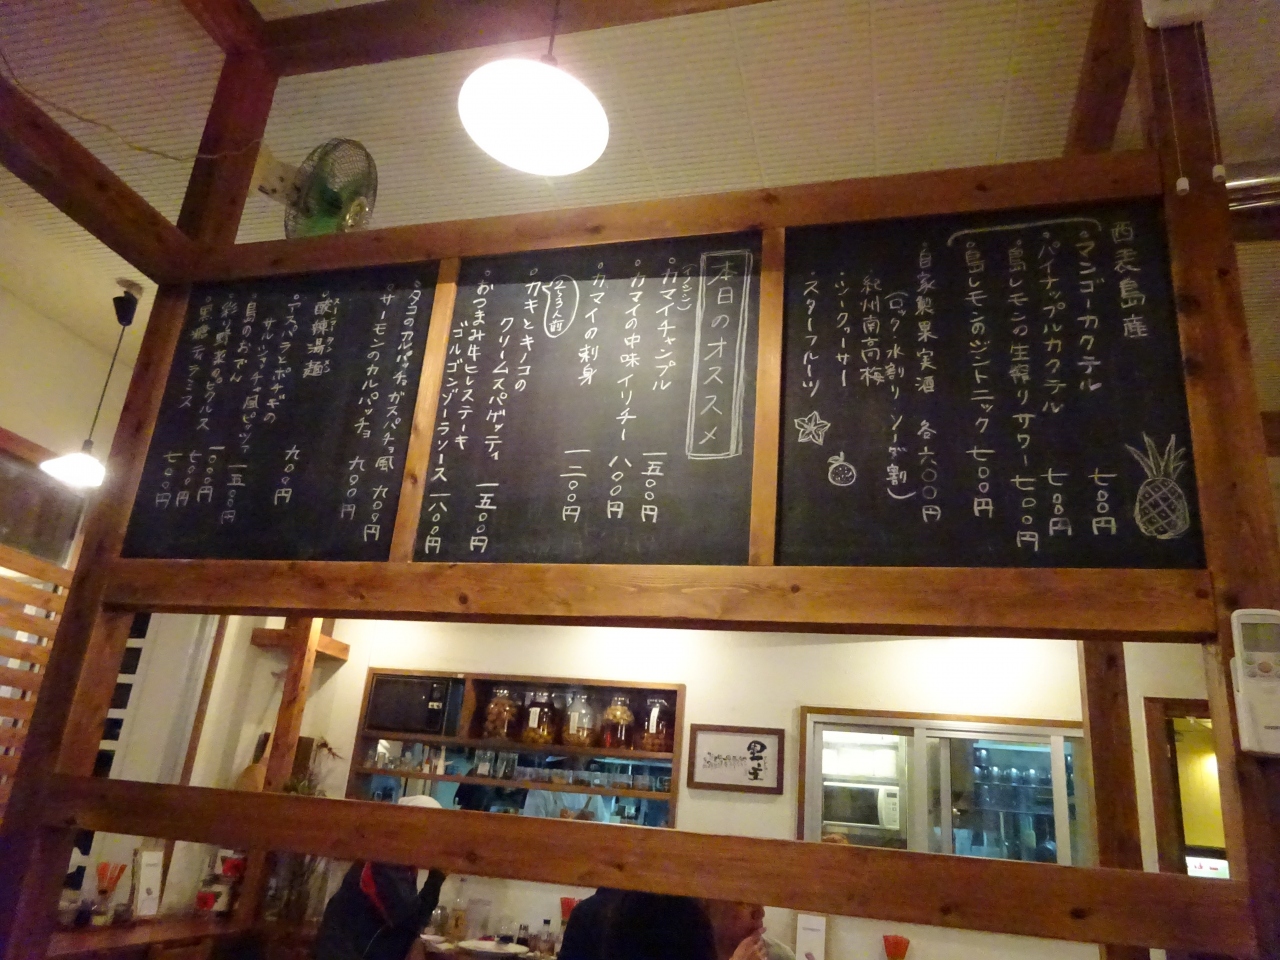 西表島産
マンゴーカクテル 七〇〇円
パイナップルカクテル 七〇〇円
島レモンの生搾りサワー 七〇〇円
島レモンのジントニック 七〇〇円
自家製果実酒 各六〇〇円
(ロック・水割り ソーダ割)
紀州南高梅
シークヮーサー
スターフルーツ
本日のオススメ
(イノシシ)
カマイチャンプル 一五〇〇円
カマイの中味イリチー 八〇〇円
カマイの刺身 一二〇〇円
2〜3人前
カキとキノコの
クリームスパゲッティ 一五〇〇円
おつまみ牛ヒレステーキ
ゴルゴンゾーラソース 一八〇〇円
タコのカルパッチョ ガスパチョ風 九〇〇円
サーモンのカルパッチョ 九〇〇円
酸辣湯麺 九〇〇円
サルシッチャ風ピッツァ 一五〇〇円
島のおでん 一〇〇〇円
彩り野菜のピクルス 七〇〇円
黒糖ティラミス 七〇〇円